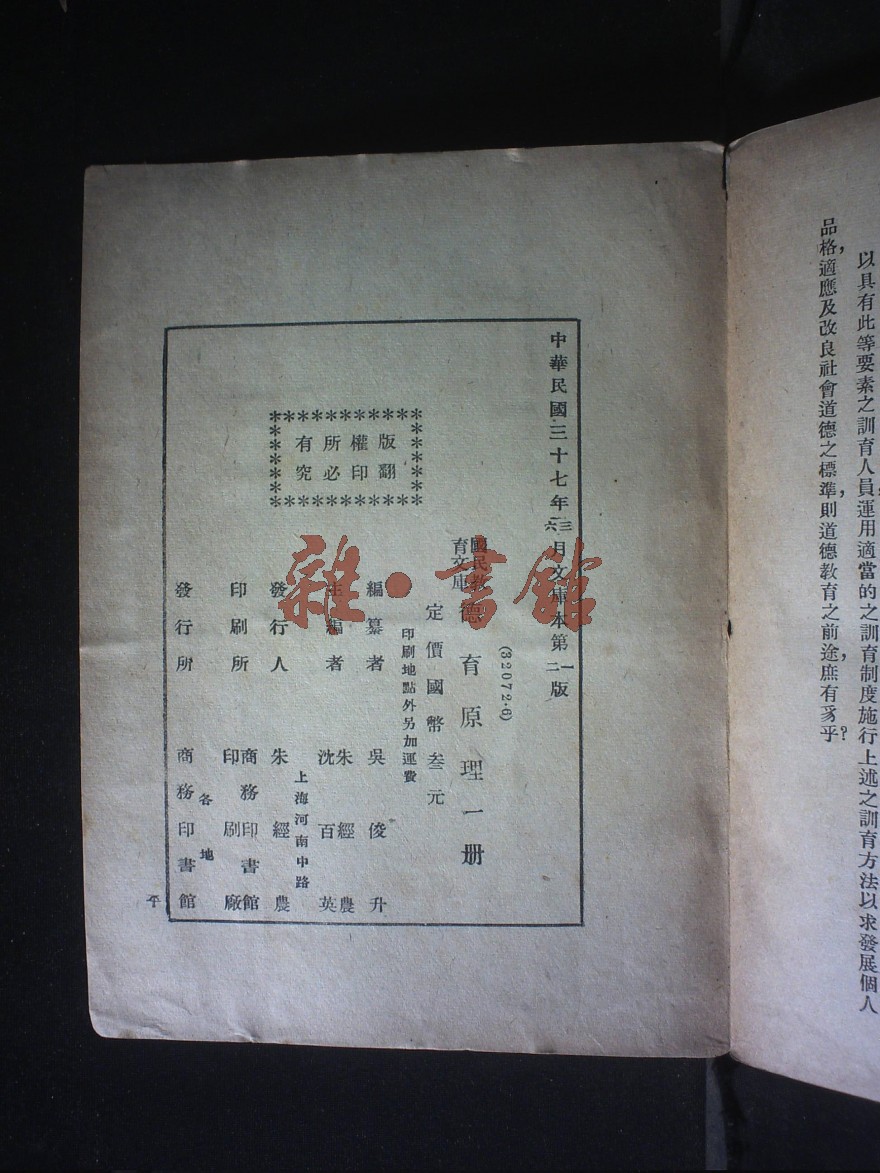 以具有此等要素之訓育人員，運用適當的之訓育制度，施行上述之訓育方法，以求發展個人
品格，適應及改良社會道德之標準，則道德教育之前途，庶有豸乎？
中華民國三十七年三月文庫本第一版
六 二
(32072·6)
國民教育文庫 德育原理一册
定價國幣叁元
印刷地點外另加運費
版權所有
翻印必究
編纂者 吳俊升
主編者 朱經農
沈百英
上海河南中路
發行人 朱經農
印刷所 商務印書館
印刷廠
各地
發行所 商務印書館
平
雜·書館